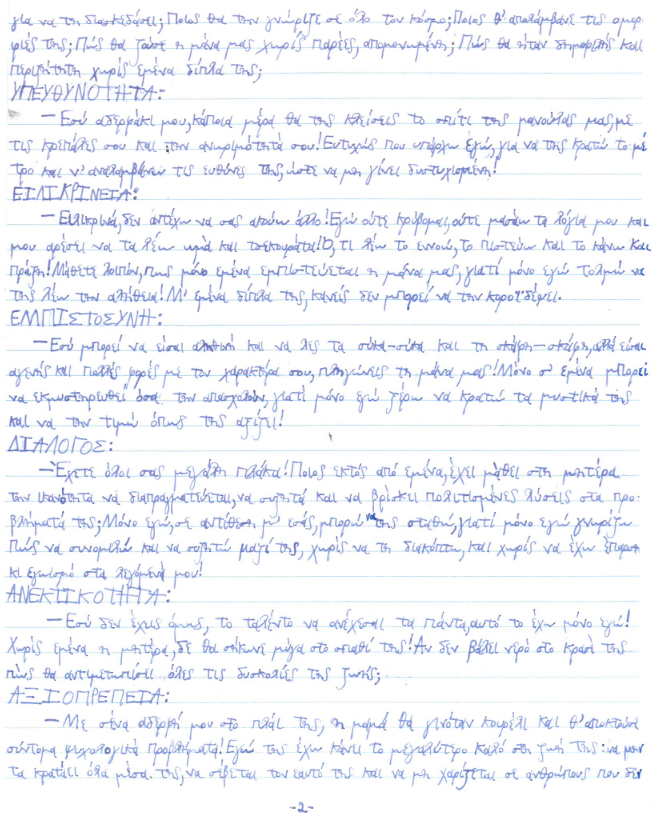 για να τη διασκεδάσει; Ποιος θα την γνώριζε σε όλο τον κόσμο; Ποιος θ' απολάμβανε τις ομορ-
φιές της; Πώς θα ζούσε η μάνα μας χωρίς παρέες, απομονωμένη; Πώς θα ήταν δημοφιλής και
περιζήτητη χωρίς εμένα δίπλα της;
ΥΠΕΥΘΥΝΟΤΗΤΑ:
—Εσύ αδερφάκι μου, κάποια μέρα θα της κλείσεις το σπίτι της μανούλας μας, με
τις κρεπάλες σου και την ανωριμότητά σου! Ευτυχώς που υπάρχω εγώ, για να της κρατώ το μέ
τρο και ν' αναλαμβάνω τις ευθύνες της, ώστε να μη γίνει δυστυχισμένη!
ΕΙΛΙΚΡΙΝΕΙΑ:
—Ειλικρινά, δεν αντέχω να σας ακούω άλλο! Εγώ ούτε κρύβομαι, ούτε μασάω τα λόγια μου και
μου αρέσει να τα λέω ωμά και τσεκουράτα! Ό,τι λέω το εννοώ, το πιστεύω και το κάνω και
πράξη! Μάθετε λοιπόν, πως μόνο εμένα εμπιστεύεται η μάνα μας, γιατί μόνο εγώ τολμώ να
της λέω την αλήθεια! Μ' εμένα δίπλα της, κανείς δεν μπορεί να την κοροϊδέψει.
ΕΜΠΙΣΤΟΣΥΝΗ:
—Εσύ μπορεί να είσαι αληθινή και να λες τα σύκα-σύκα και τη σκάφη-σκάφη, αλλά είσαι
αγενής και πολλές φορές με τον χαρακτήρα σου, πληγώνεις τη μάνα μας! Μόνο σ' εμένα μπορεί
να εκμυστηρευθεί όσα την απασχολούν, γιατί μόνο εγώ ξέρω να κρατώ τα μυστικά της
και να την τιμώ όπως της αξίζει!
ΔΙΑΛΟΓΟΣ:
—Έχετε όλοι σας μεγάλη πλάκα! Ποιος εκτός από εμένα, έχει μάθει στη μητέρα
την ικανότητα να διαπραγματεύεται, να συζητά και να βρίσκει πολιτισμένες λύσεις στα προ-
βλήματά της; Μόνο εγώ, σε αντίθεση μ' εσάς, μπορώ να της σταθώ, γιατί μόνο εγώ γνωρίζω
πώς να συνομιλώ και να συζητώ μαζί της, χωρίς να τη διακόπτω, και χωρίς να έχω έπαρση
κι εγωισμό στα λεγόμενά μου!
ΑΝΕΚΤΙΚΟΤΗΤΑ:
—Εσύ δεν έχεις όμως, το ταλέντο να ανέχεσαι τα πάντα, αυτό το έχω μόνο εγώ!
Χωρίς εμένα η μητέρα, δε θα σήκωνε μύγα στο σπαθί της! Αν δεν βάλει νερό στο κρασί της
πώς θα αντιμετωπίσει όλες τις δυσκολίες της ζωής;
ΑΞΙΟΠΡΕΠΕΙΑ:
—Με σένα αδερφή μου στο πλάι της, η μαμά θα γινόταν κουρέλι και θ' αποκτούσε
σύντομα ψυχολογικά προβλήματα! Εγώ της έχω κάνει το μεγαλύτερο καλό στη ζωή της: να μην
τα κρατάει όλα μέσα της, να σέβεται τον εαυτό της και να μη χαρίζεται σε ανθρώπους που δεν
-2-